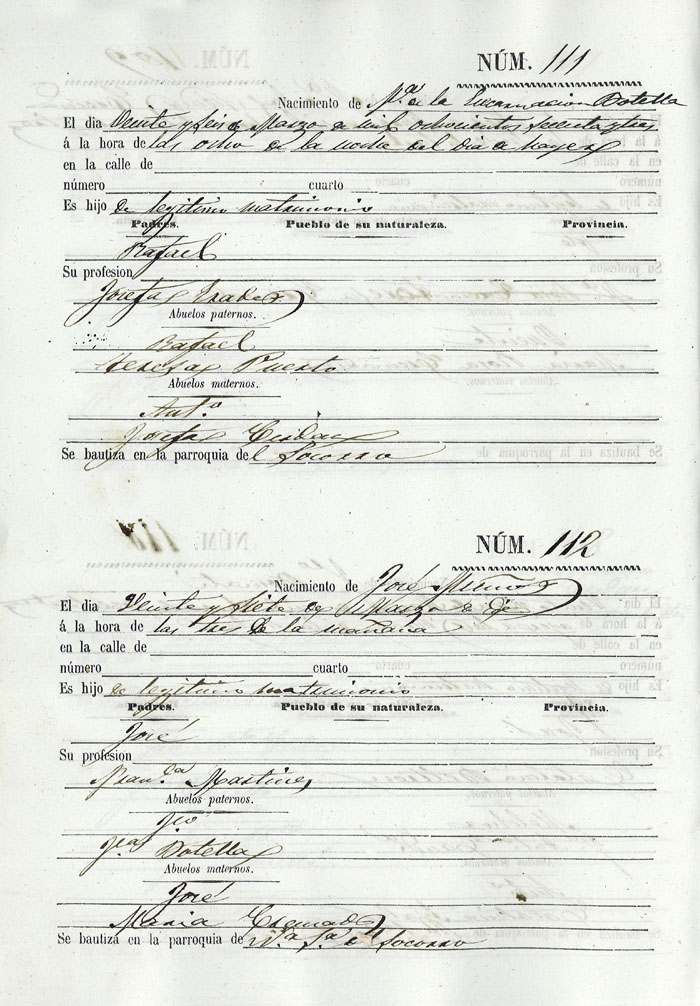 NÚM. 111
Nacimiento de M.ª de la Encarnacion Botella
El dia Veinte y seis de Marzo de mil ochocientos sesenta y tres
á la hora de las ocho de la noche del dia de hayer
en la calle de
número cuarto
Es hijo de legitimo matrimonio
Padres. Pueblo de su naturaleza. Provincia.
Rafael
Su profesion
Josefa
Abuelos paternos.
Rafael
Teresa Puerto
Abuelos maternos.
Ant.º
Josefa
Se bautiza en la parroquia del Socorro
NÚM. 112
Nacimiento de José Muñoz
El dia Veinte y siete de Marzo de
á la hora de las tres de la mañana
en la calle de
número cuarto
Es hijo de legitimo matrimonio
Padres. Pueblo de su naturaleza. Provincia.
José
Su profesion
Fran.ca Martinez
Abuelos paternos.
Botella
Abuelos maternos.
José
Maria Cremades
Se bautizá en la parroquia de N.ª S.ª del Socorro